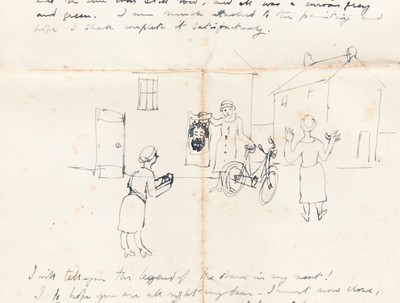 and the sun was still low, and all was a curious grey
and green. I am much attached to the painting and
hope I shall complete it satisfactorily.
I will tell you the legend of the down in my next!
I do hope you are all right my dear - I must now close,